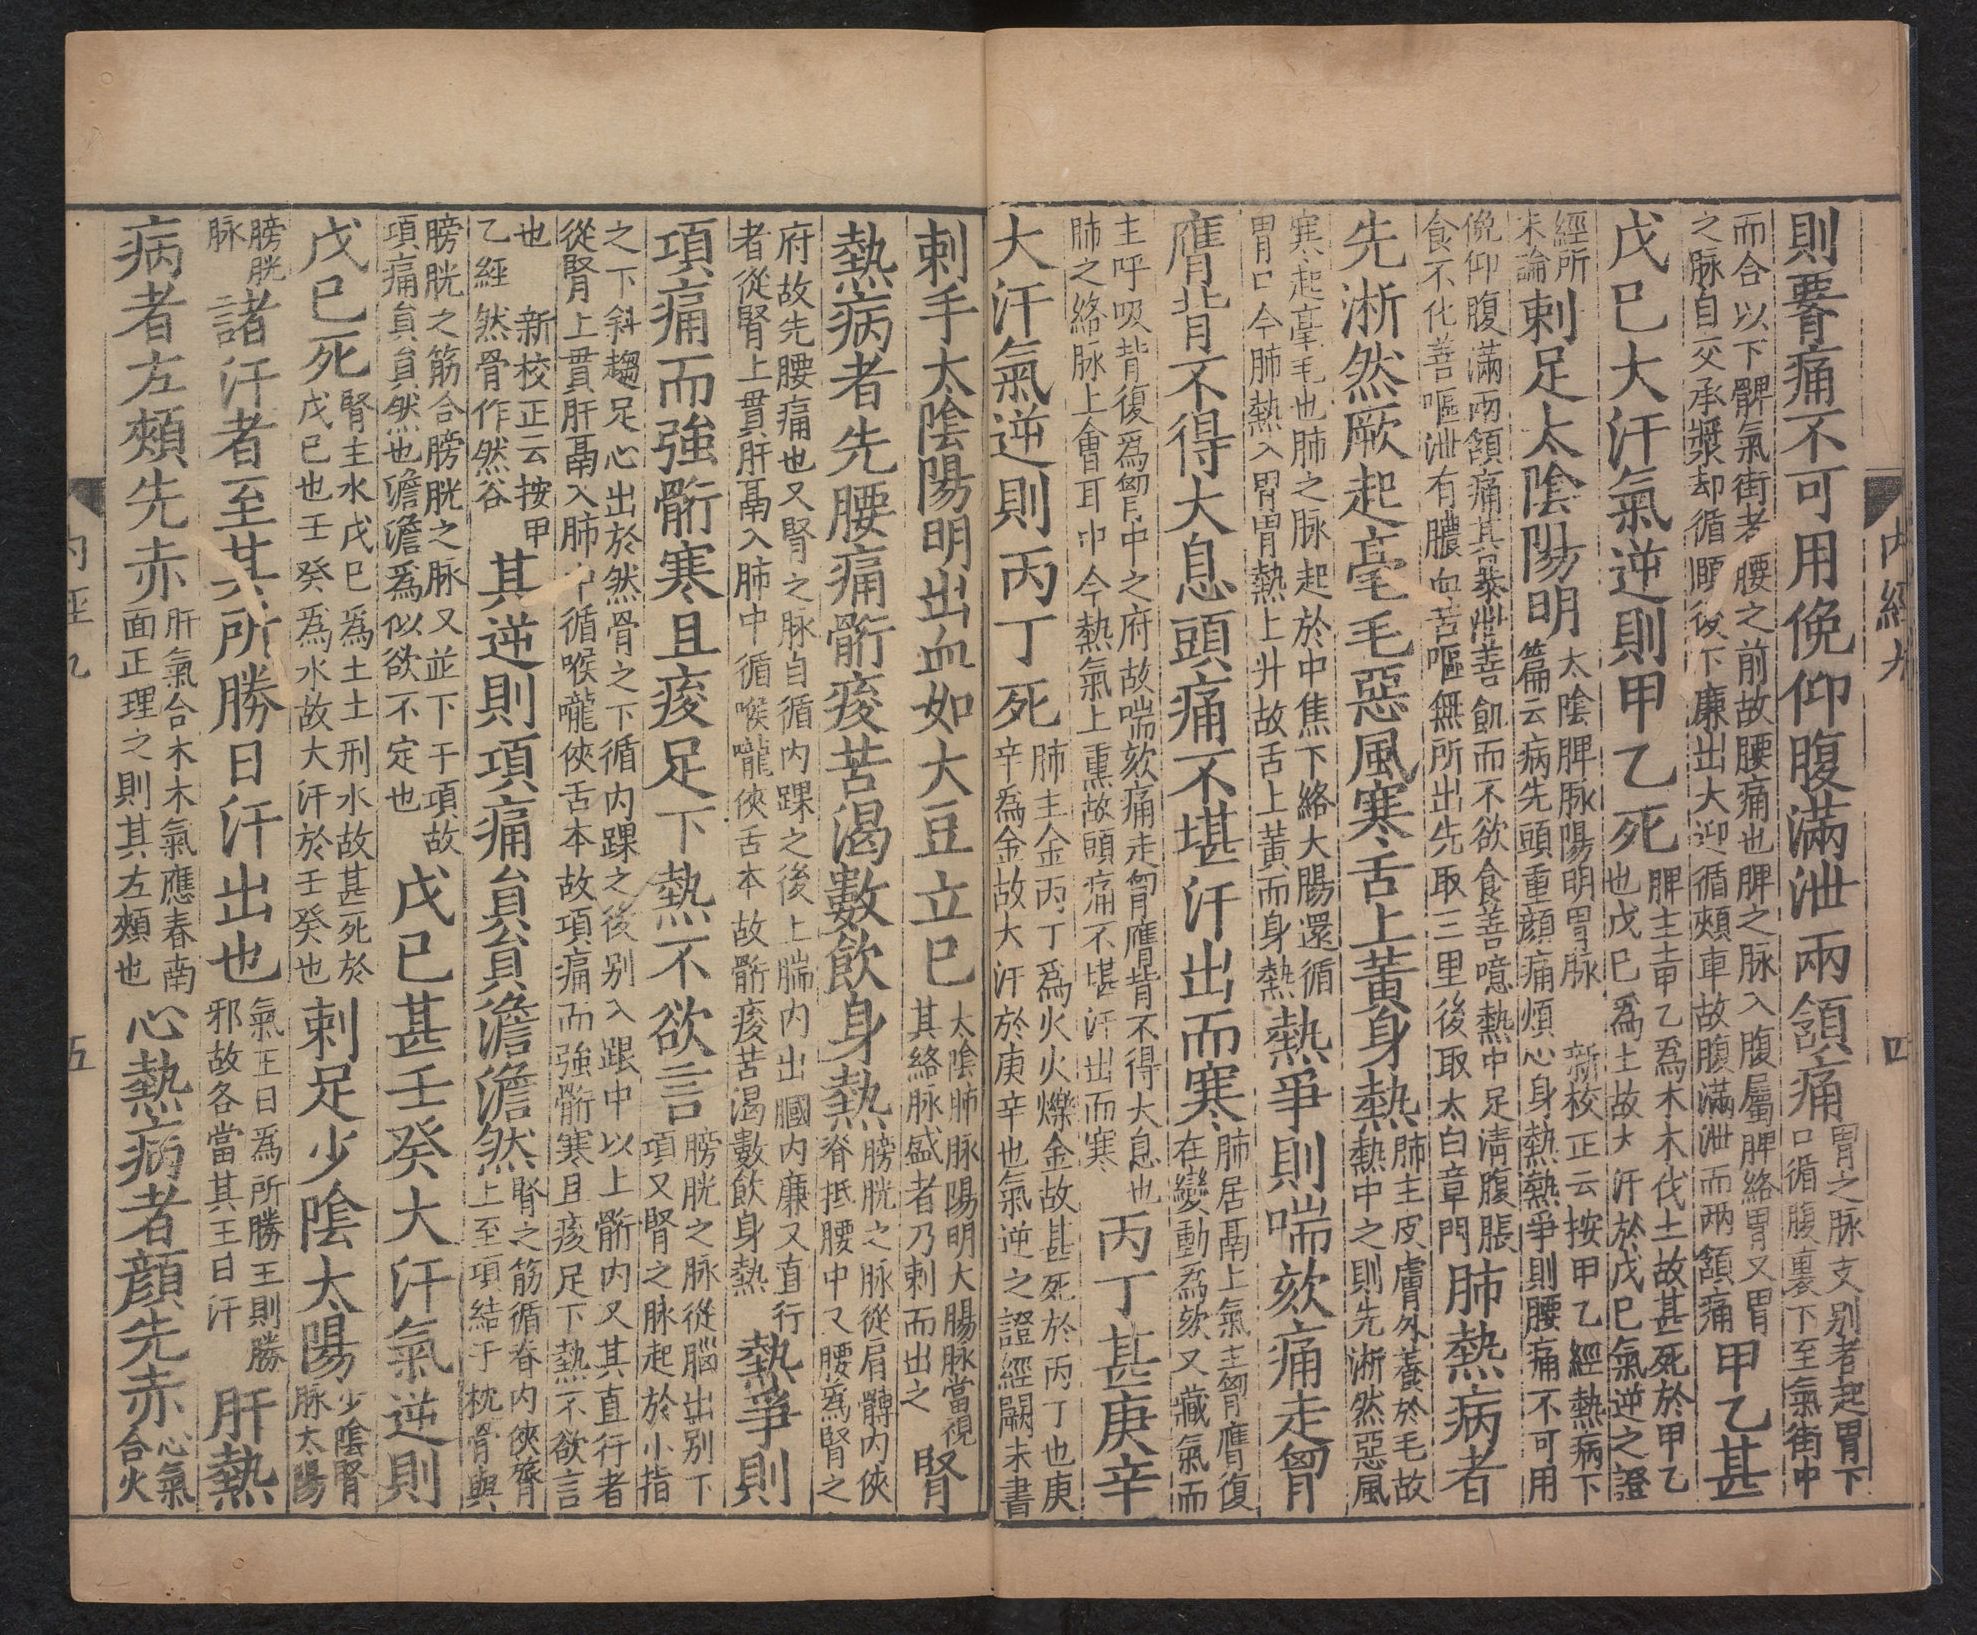 則腰痛不可用俛仰腹滿泄兩頷痛胃之脉支别者起胃下口循腹裏下至氣街中
而合以下髀氣街者腰之前故腰痛也脾之脉入腹屬脾絡胃又胃之脉自交承漿却循頤後下廉出大迎循頰車故腹滿泄而兩頷痛甲乙甚
戊巳大汗氣逆則甲乙死脾主土甲乙爲木木伐土故甚死於甲乙也戊巳爲土故大汗於戊巳氣逆之證
經所未論刺足太陰陽明太陰脾脉陽明胃脉 新校正云按甲乙經熱病下篇云病先頭重顔痛煩心身熱熱爭則腰痛不可用
俛仰腹滿兩頷痛甚暴泄善飢而不欲食善噫熱中足淸腹脹食不化善嘔泄有膿血苦嘔無所出先取三里後取太白章門肺熱病者
先淅然厥起毫毛惡風寒舌上黃身熱肺主皮膚外養於毛故熱中之則先淅然惡風
寒起毫毛也肺之脉起於中焦下絡大腸還循胃口今肺熱入胃胃熱上升故舌上黃而身熱熱爭則喘欬痛走胷
膺背不得大息頭痛不堪汗出而寒肺居鬲上氣主胷膺復在變動爲欬又藏氣而
主呼吸背復爲胷中之府故喘欬痛走胷膺背不得大息也肺之絡脉上會耳中今熱氣上熏故頭痛不堪汗出而寒丙丁甚庚辛
大汗氣逆則丙丁死肺主金丙丁爲火火爍金故甚死於丙丁也庚辛爲金故大汗於庚辛也氣逆之證經闕未書
內經九 四
刺手太陰陽明出血如大豆立巳太陰肺脉陽明大腸脉當視其絡脉盛者乃刺而出之腎
熱病者先腰痛䯒痠苦渴數飲身熱膀胱之脉從肩髆內俠脊抵腰中又腰爲腎之
府故先腰痛也又腎之脉自循內踝之後上腨內出膕內廉又直行者從腎上貫肝鬲入肺中循喉嚨俠舌本故䯒痠苦渴數飲身熱熱爭則
項痛而強䯒寒且痠足下熱不欲言膀胱之脉從腦出别下項又腎之脉起於小指
之下斜趨足心出於然骨之下循內踝之後别入跟中以上䯒內又其直行者從腎上貫肝鬲入肺中循喉嚨俠舌本故項痛而強䯒寒且痠足下熱不欲言
也 新校正云按甲乙經然骨作然谷其逆則項痛員員澹澹然腎之筋循脊內俠膂上至項結于枕骨與
膀胱之筋合膀胱之脉又並下于項故項痛員員然也澹澹爲似欲不定也戊巳甚壬癸大汗氣逆則
戊巳死腎主水戊巳爲土土刑水故甚死於戊巳也壬癸爲水故大汗於壬癸也刺足少陰太陽少陰腎脉太陽
膀胱脉諸汗者至其所勝日汗出也氣王日爲所勝王則勝邪故各當其王日汗肝熱
病者左頰先赤肝氣合木木氣應春南面正理之則其左頰也心熱病者顔先赤心氣合火
內經九 五